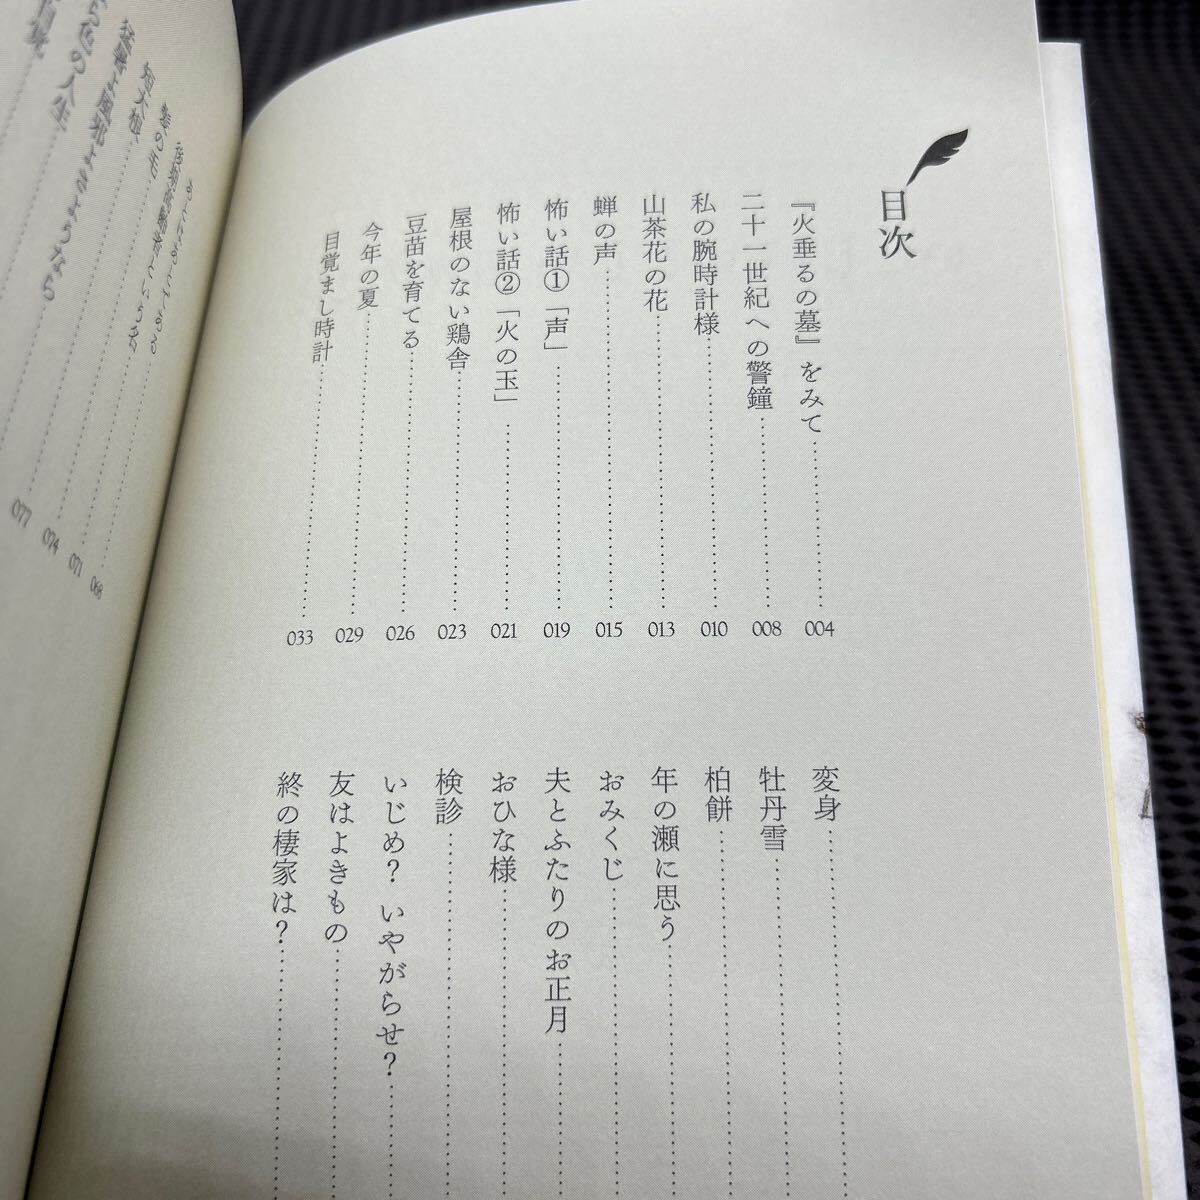 目次
『火垂るの墓』をみて 004
二十一世紀への警鐘 008
私の腕時計様 010
山茶花の花 013
蝉の声 015
怖い話①「声」 019
怖い話②「火の玉」 021
屋根のない鶏舎 023
豆苗を育てる 026
今年の夏 029
目覚まし時計 033
変身
牡丹雪
柏餅
年の瀬に思う
おみくじ
夫とふたりのお正月
おひな様
検診
いじめ? いやがらせ?
友はよきもの
終の棲家は?
068
071
074
077